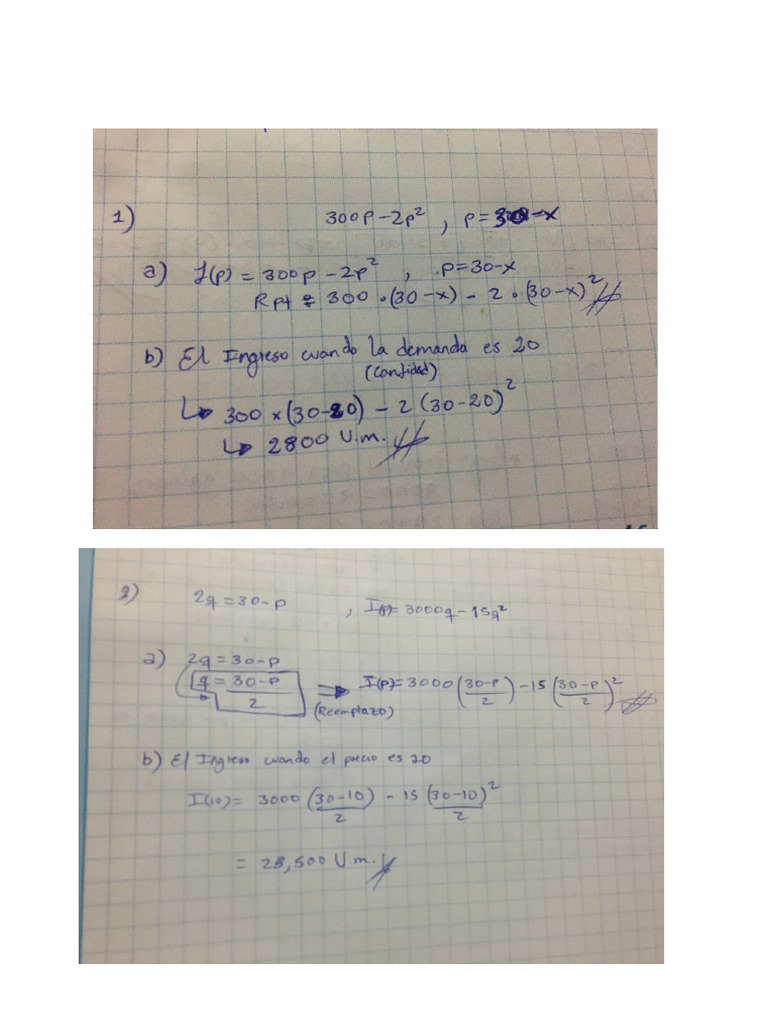 1) 300p-2p² , p=30-x
a) I(p) = 300p - 2p² , p=30-x
Rpt = 300 · (30-x) - 2 · (30-x)²
b) El Ingreso cuando la demanda es 20
(Cantidad)
↳ 300 × (30-20) - 2 (30-20)²
↳ 2800 U.m.
2) 2q = 30-p , I(p)= 3000q - 15q²
a) 2q = 30-p
q = 30-p / 2 ⇒ I(p)= 3000 (30-p / 2) - 15 (30-p / 2)²
(Reemplazo)
b) El Ingreso cuando el precio es 20
I(10) = 3000 (30-10 / 2) - 15 (30-10 / 2)²
= 28,500 U.m.